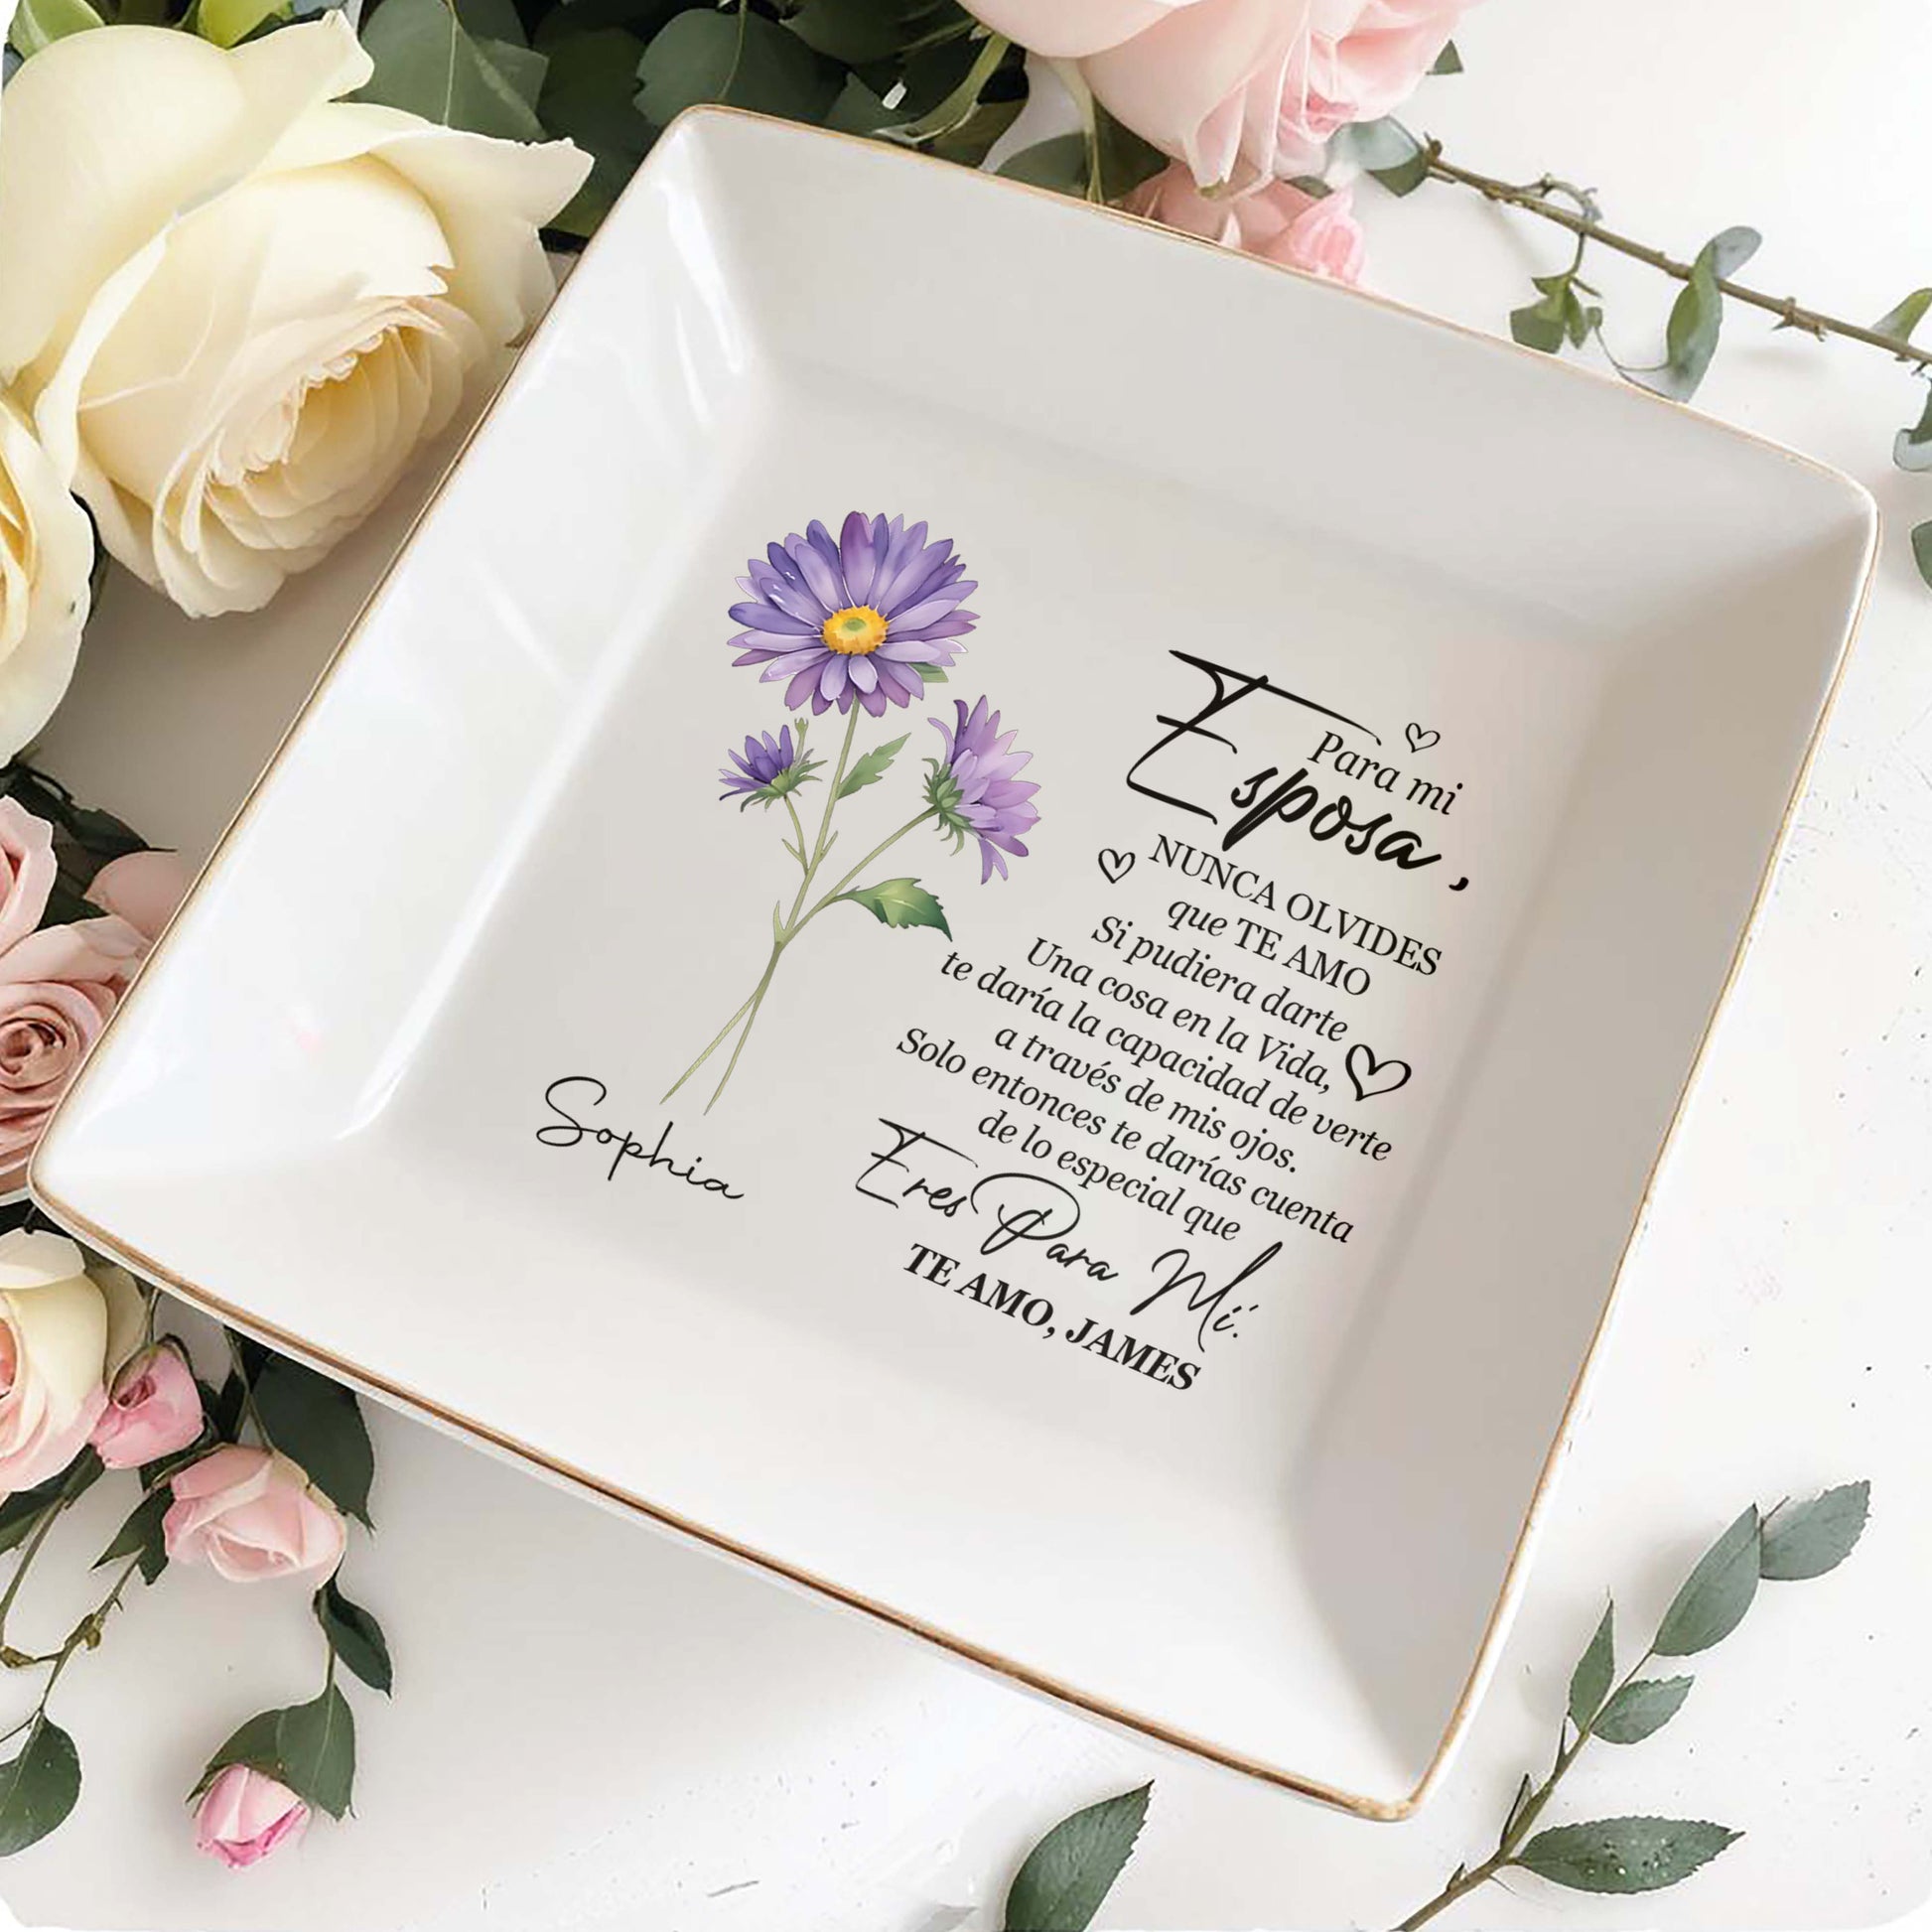 Para mi
Esposa,
NUNCA OLVIDES
que TE AMO
Si pudiera darte
Una cosa en la Vida,
te daría la capacidad de verte
a través de mis ojos.
Solo entonces te darías cuenta
de lo especial que
Eres Para Mí.
TE AMO, JAMES
Sophia